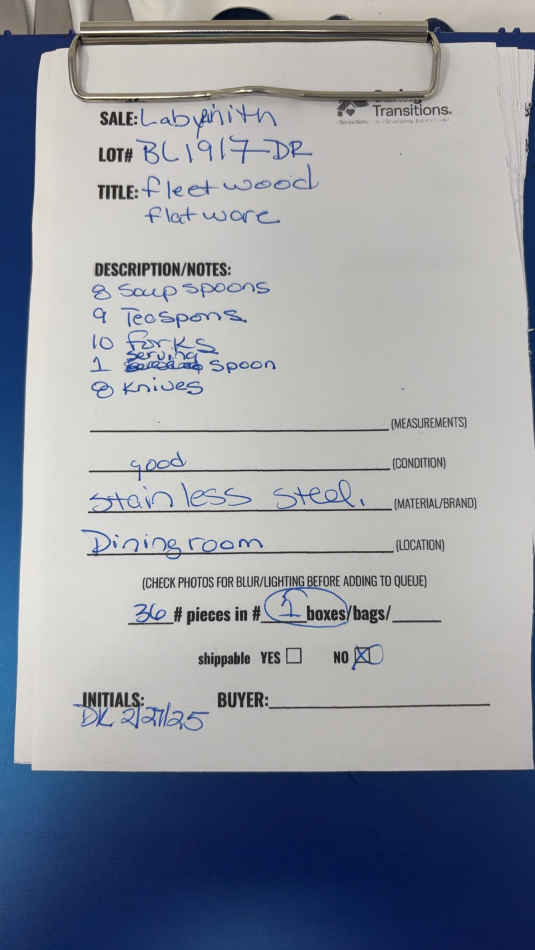 Transitions.
SALE: Labyrinith
LOT# BL1917-DR
TITLE: fleetwood
flatware
DESCRIPTION/NOTES:
8 Soup spoons
9 Teaspons
10 forks
1 serving spoon
8 Knives
(MEASUREMENTS)
good (CONDITION)
stainless steel. (MATERIAL/BRAND)
Diningroom (LOCATION)
(CHECK PHOTOS FOR BLUR/LIGHTING BEFORE ADDING TO QUEUE)
36 # pieces in # 1 boxes/bags/
shippable YES ☐ NO ☒
INITIALS: BUYER:
DK 2/27/25